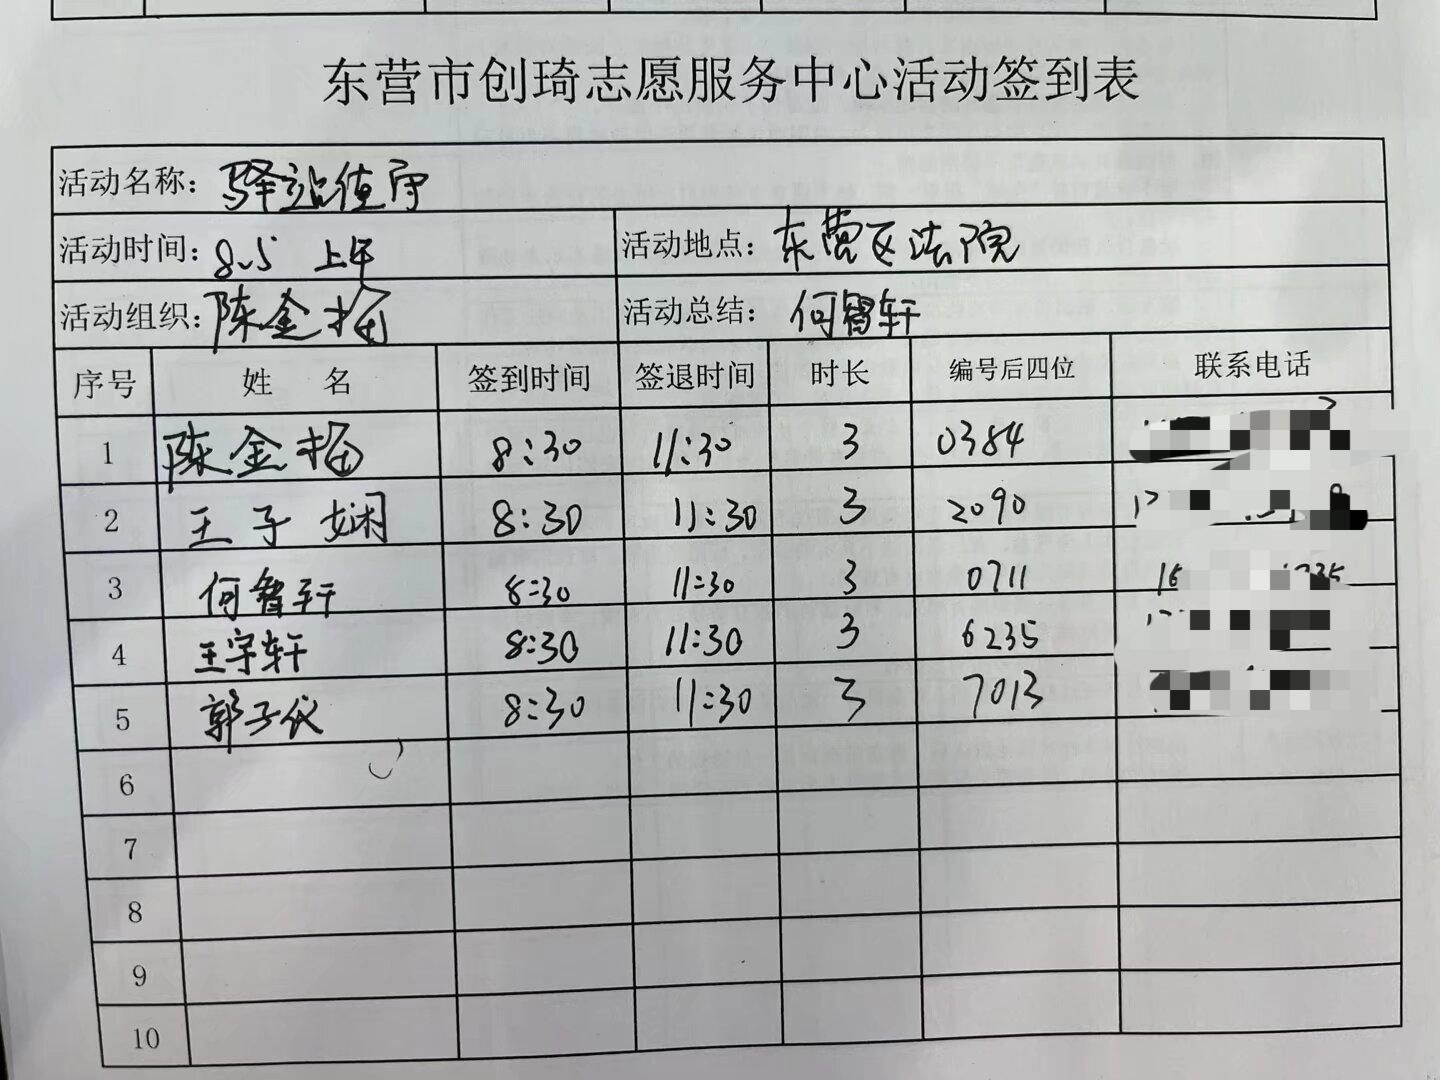 东营市创琦志愿服务中心活动签到表
活动名称：驿站值守
活动时间：8.5 上午 活动地点：东营区法院
活动组织：陈金梅 活动总结：何智轩
序号 姓名 签到时间 签退时间 时长 编号后四位 联系电话
1 陈金梅 8:30 11:30 3 0384
2 王子娴 8:30 11:30 3 2090
3 何智轩 8:30 11:30 3 0711
4 王宇轩 8:30 11:30 3 6235
5 郭子仪 8:30 11:30 3 7013
6
7
8
9
10